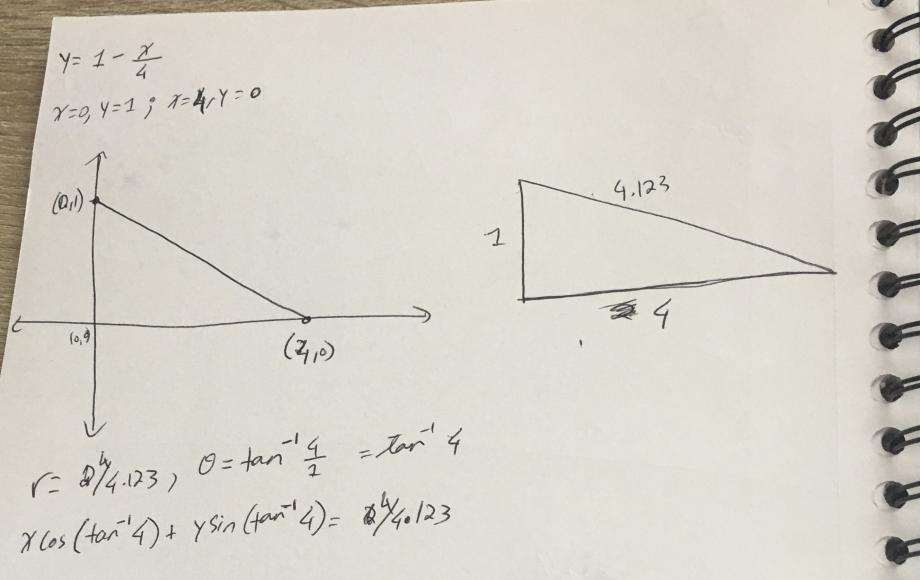 y = 1 - x/4
x=0, y=1 ; x=4, y=0
(0,1)
(0,0)
(4,0)
4.123
1
4
r = 4/4.123, θ = tan⁻¹ 4/1 = tan⁻¹ 4
x cos(tan⁻¹ 4) + y sin(tan⁻¹ 4) = 4/4.123